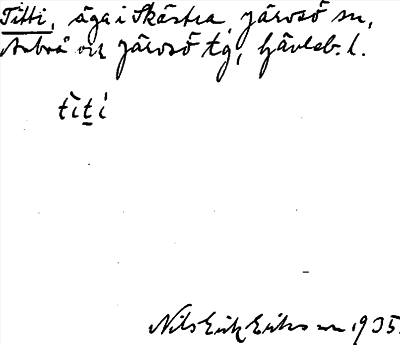 Titti, äga i Skästra, Järvsö sn,
Arbrå och Järvsö tg, Gävleb. l.
tìti
Nils Erik Eriksson 1935.